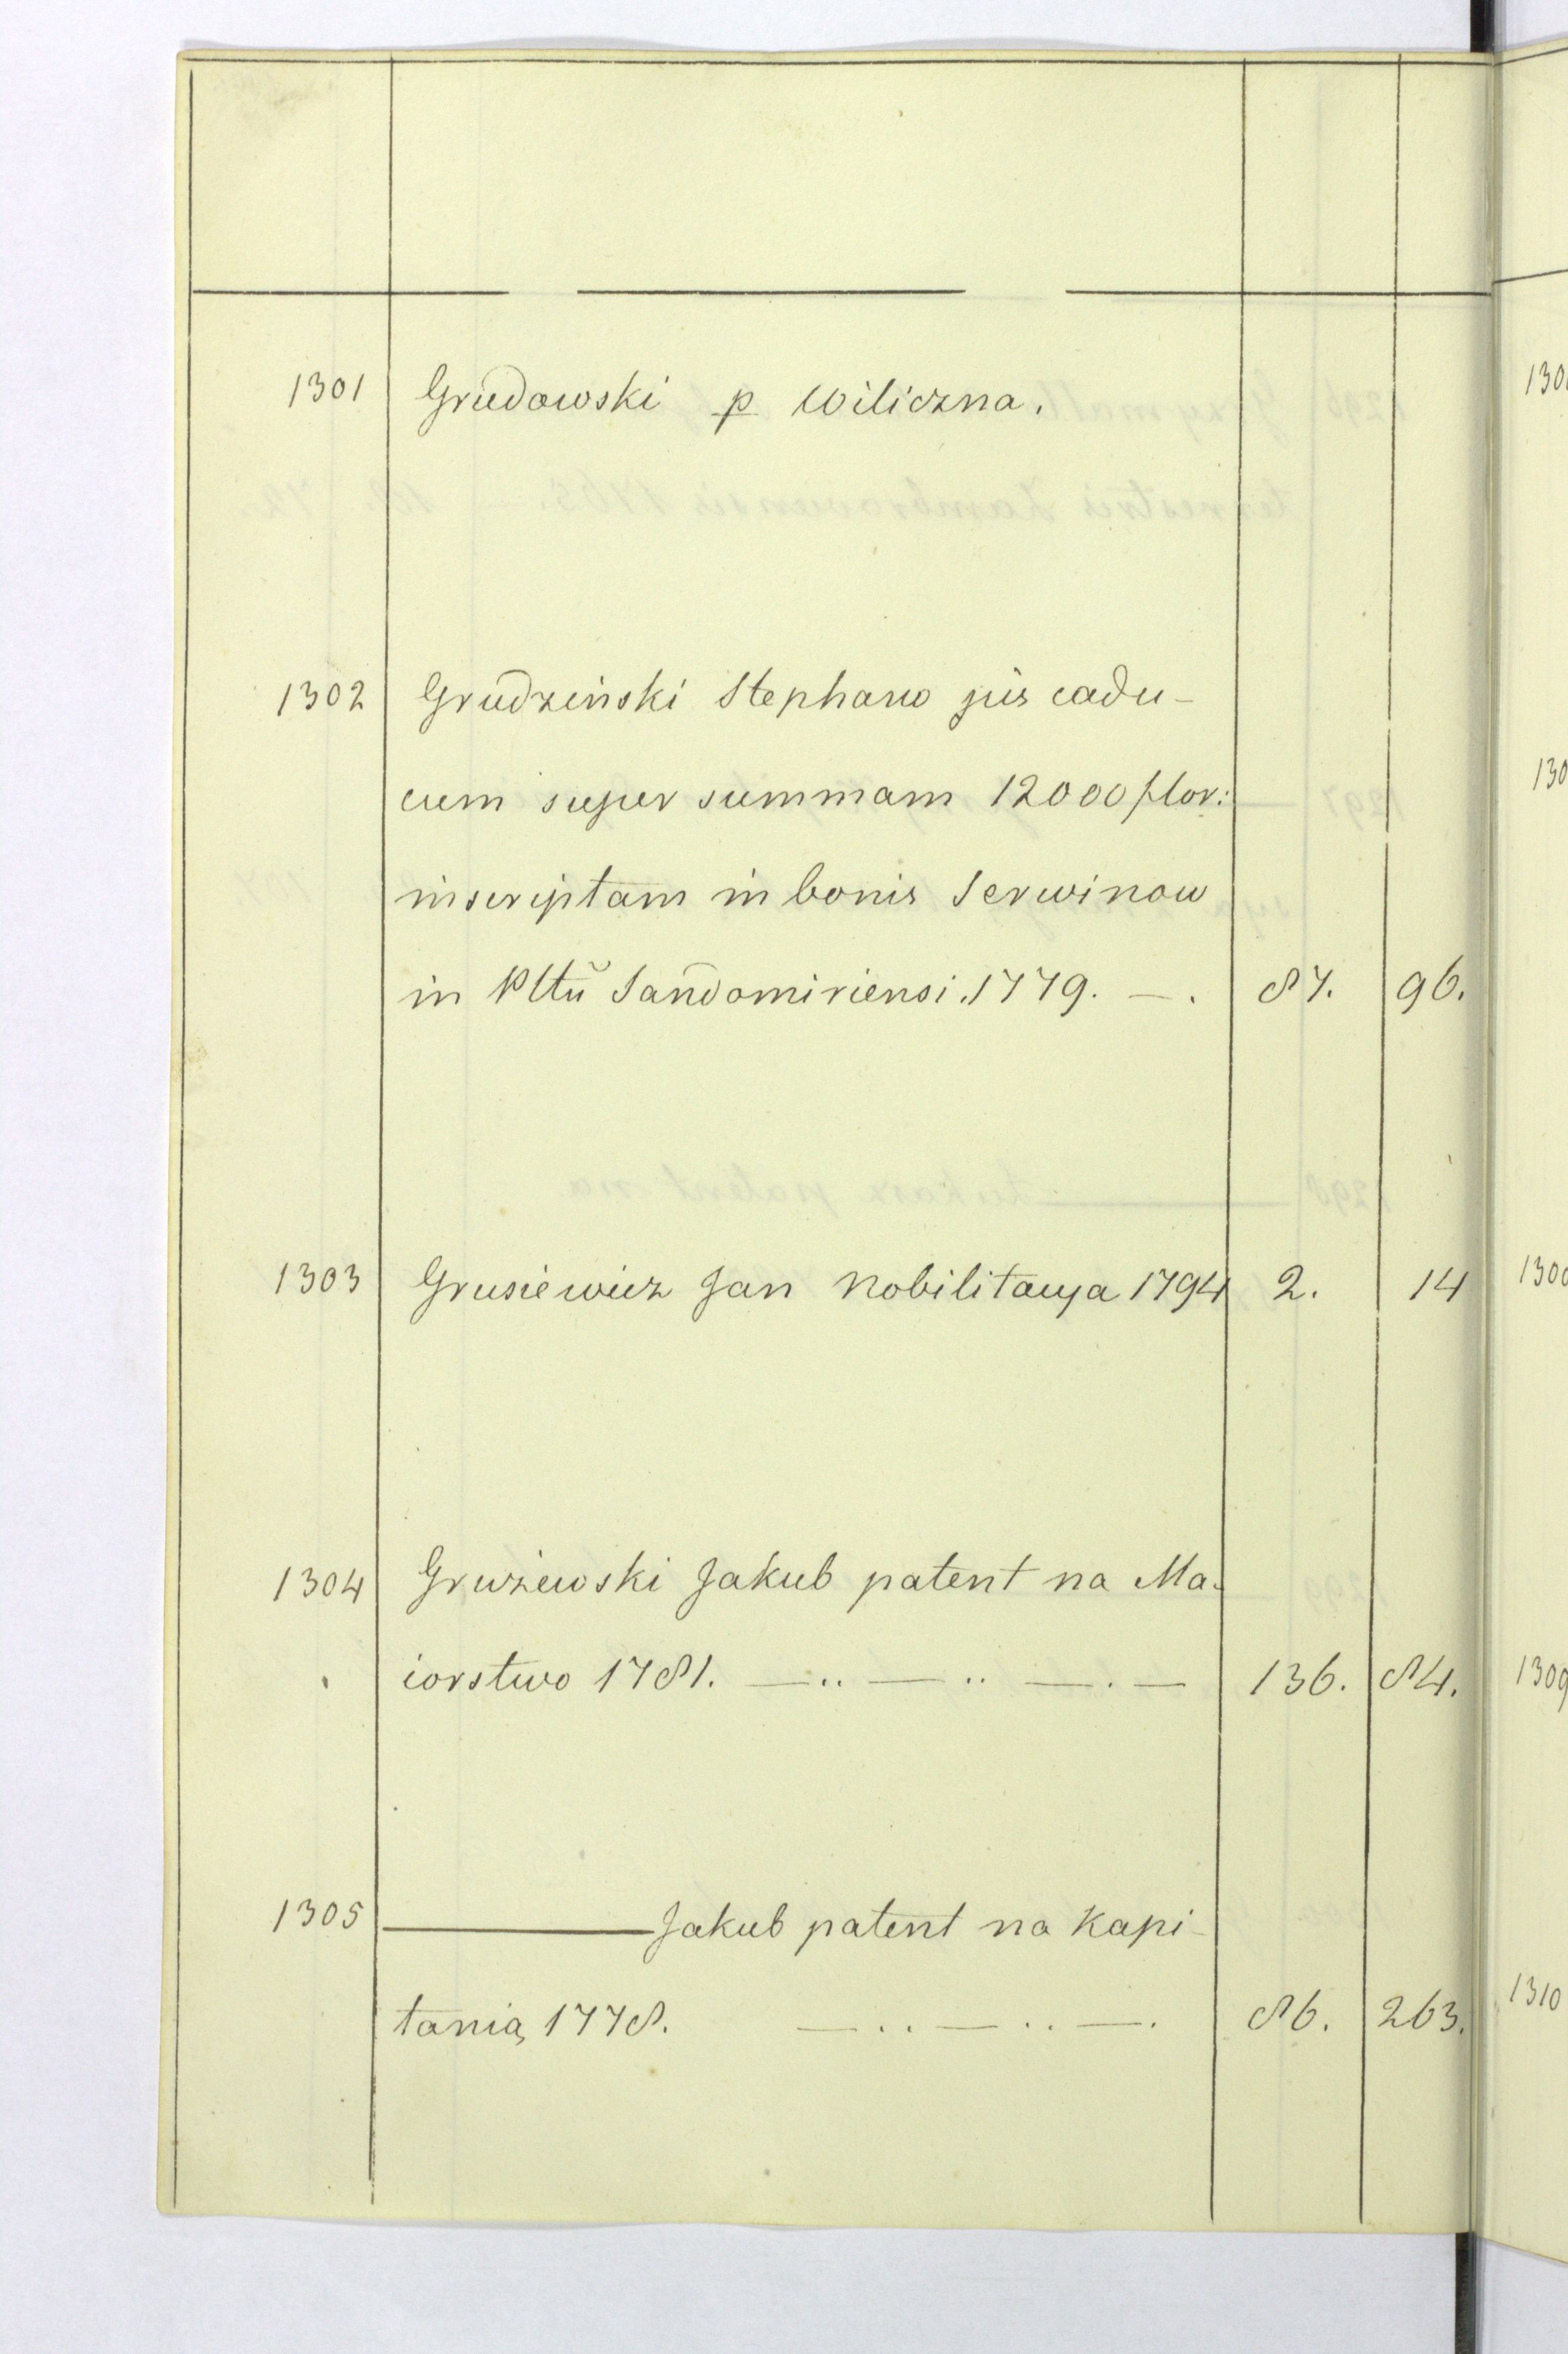 1301 Grudowski p Wiliczna.
1302 Grudziński Stephano jus cadu-
cum super summam 12000 flor:
inscriptam in bonis Serwinow
in Pltŭ Sandomiriensi. 1779. — . 87. 96.
1303 Grusiewicz Jan Nobilitacya 1794 2. 14
1304 Grużewski Jakub patent na Ma-
iorstwo 1781. — .. — .. — . — 136. 84.
1305 ——— Jakub patent na Kapi-
tanią 1778. — .. — .. — . 86. 263.
130
130
130
1309
1310